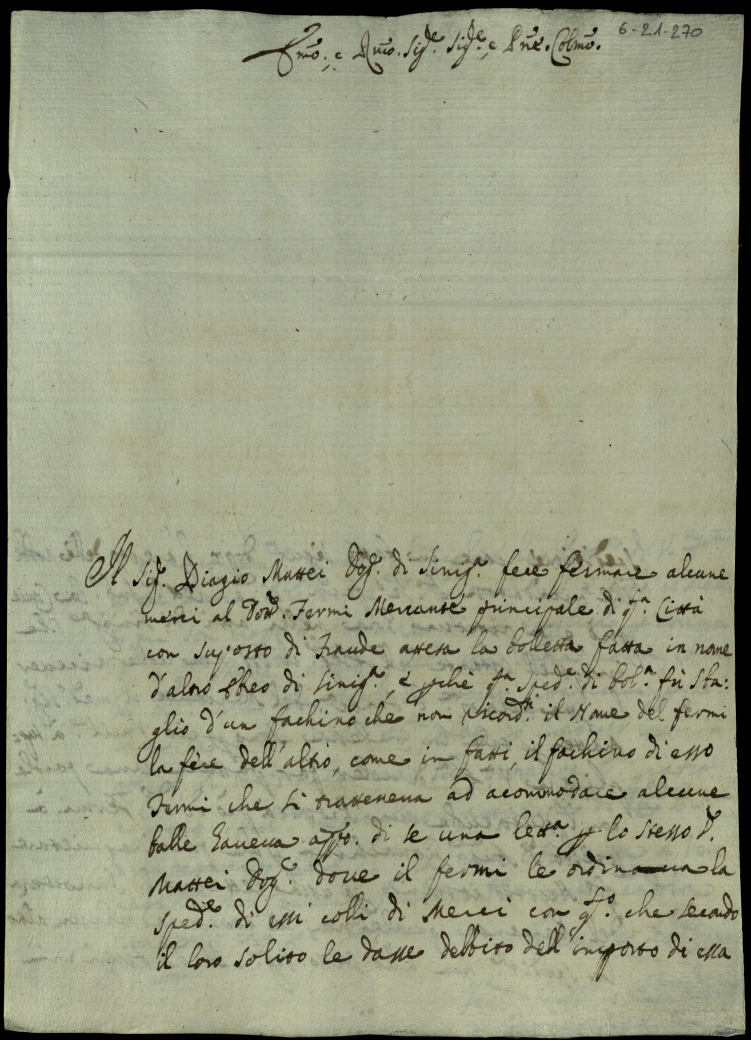 6-21-270
Emo. e Rmo. Sigre. Sigre. e Pne. Colmo.
Il Sigr. Biagio Mattei Dogr. di Siniga. fece fermare alcune
merci al Fermi Mercante principale di qta. Città
con suposto di Fraude attesa la bolletta fatta in nome
d'altro Ebreo di Sinigа., e perchè qta. Spede. di bolа. fù Sba:
glio d'un fachino che non ricordа. il Nome del fermi
la fece dell'altro, come in fatti, il fachino di esso
Fermi che si tratteneva ad acommodare alcune
balle haveva appo. di se una letta. p lo stesso Sr.
Mattei Dogr. dove il fermi le ordinava la
Spede. di essi colli di Merci con qto. che secondo
il loro solito le dasse debbito dell'importo di essa